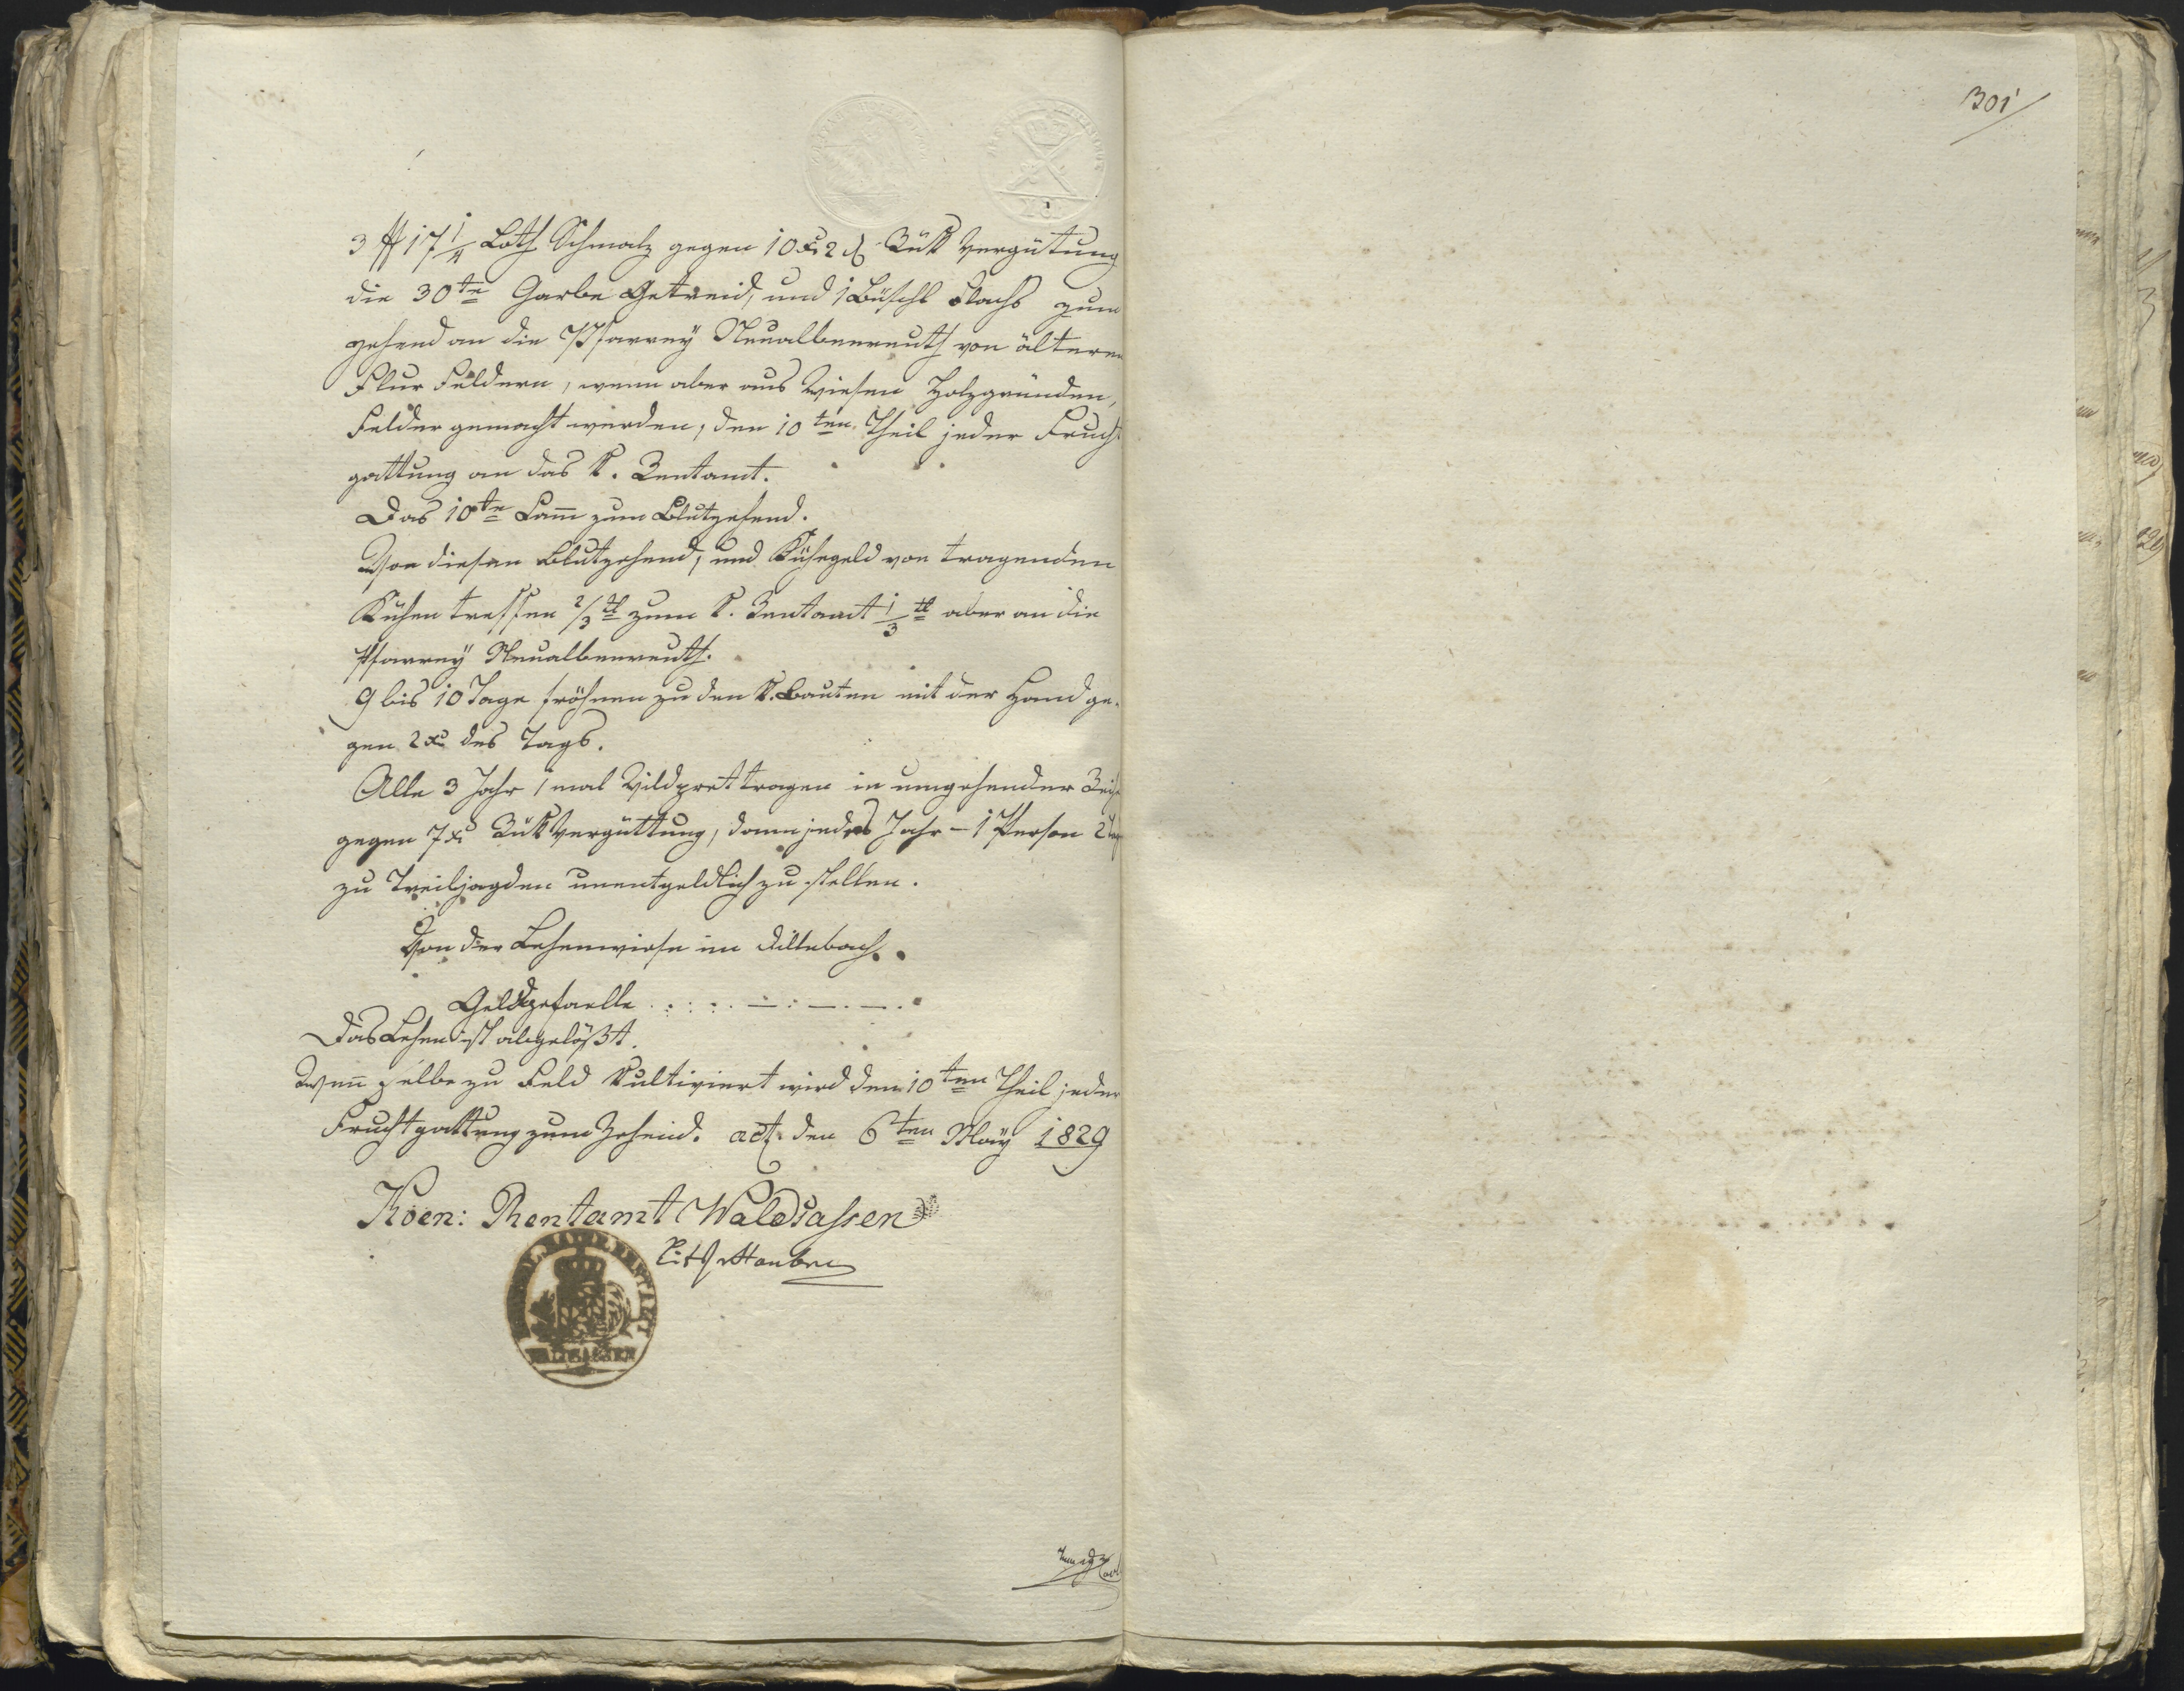 301
3 ℔ 17 1/4 Loth Schmalz gegen 10 xr 2 ₰ Rük Vergütung
die 30te Garbe Getreid, und 1 Büschl Flachs zum
Zehend an die Pfarrey Neualbenreuth von älteren
Flur Feldern, wenn aber aus Wiesen Holzgründen,
Felder gemacht werden, den 10ten Theil jeder Frucht
gattung an das K. Rentamt.
Das 10te Lam̅ zum Blutzehend.
Von diesen Blutzehend, und Kühegeld von tragenden
Kühen treffen 2/3tl zum K. Rentamt 1/3tl aber an die
Pfarrey Neualbenreuth.
9 bis 10 Tage fröhnen zu den K. Bauten mit der Hand ge-
gen 2 xr des Tags.
Alle 3 Jahr 1 mal Wildpret tragen in umgehender Reihe
gegen 7 xr Rük Vergüttung, dann jedes Jahr – 1 Person 2 Tag
zu Treibjagden unentgeldlich zu stellen.
Von der Lehenwiese im Dillebach.
Geldgefaelle . : : . — : — . — .
Das Lehen ist abgelößt.
Wen̅ selbe zu Feld kultiviert wird den 10ten Theil jeder
Fruchtgattung zum Zehend. act. den 6ten May 1829
Koen: Rentamt Waldsassen
RENTAMT
WALDSASSEN